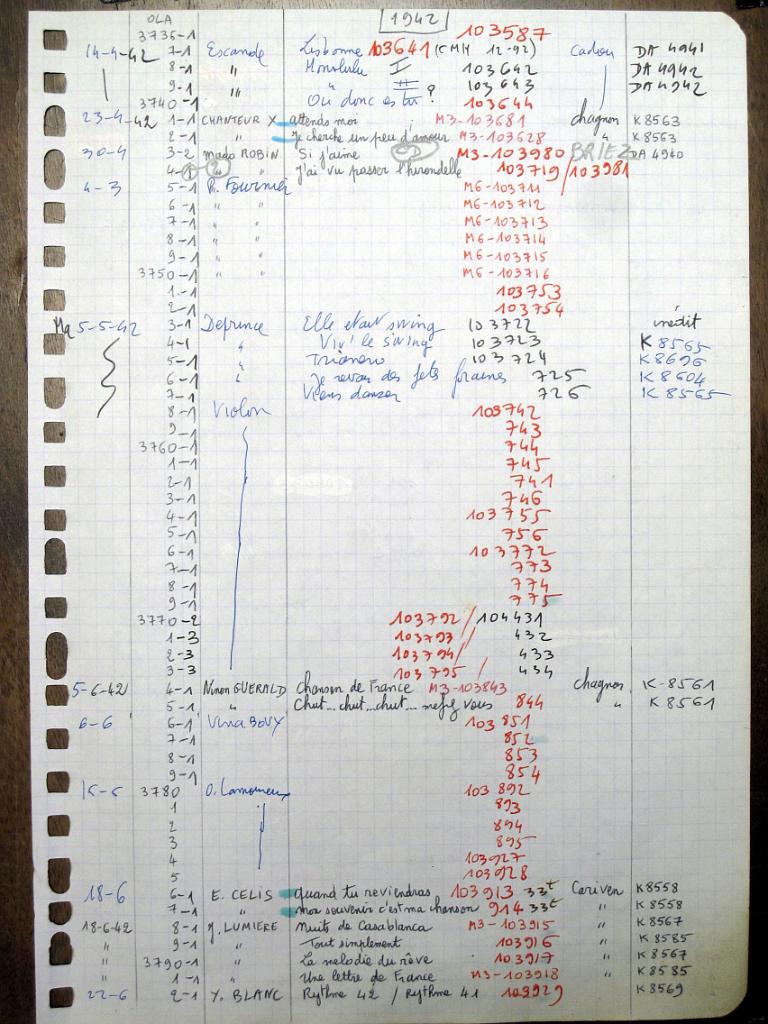 OLA 1942
3736-1 103587
14-4-42 7-1 Escande Lisbonne 103641 (CMH 12-92) Cadou DA 4941
8-1 " Honolulu I 103642 DA 4942
9-1 " " II 103643 DA 4942
3740-1 Où donc es tu ? 103644
23-4-42 1-1 CHANTEUR X attends moi M3-103681 chagnon K8563
2-1 " Je cherche un peu d'amour M3-103628 " K8563
30-4 3-2 mado ROBIN Si j'aime M3-103980 BRIEZ DA 4940
4-1 2 " " J'ai vu passer l'hirondelle 103719/103981
4-3 5-1 P. Fournier M6-103711
6-1 " " M6-103712
7-1 " " M6-103713
8-1 " " M6-103714
9-1 " " M6-103715
3750-1 " " M6-103716
1-1 103753
2-1 103754
Ma 5-5-42 3-1 Deprince Elle etait swing 103722 inédit
4-1 " Viv' le swing 103723 K8565
5-1 " Trianero 103724 K8696
6-1 " Je revois des fets foraines 725 K8604
7-1 Viens danser 726 K8565
8-1 Violon 103742
9-1 743
3760-1 744
1-1 745
2-1 741
3-1 746
4-1 103755
5-1 756
6-1 103772
7-1 773
8-1 774
9-1 775
3770-2 103792 / 104431
1-3 103793 / 432
2-3 103794 / 433
3-3 103795 / 434
5-6-42 4-1 Ninon GUERALD Chanson de France M3-103843 chagnon K-8561
5-1 " Chut... chut... chut... nefiez vous 844 " K 8561
6-6 6-1 Vina BOVY 103851
7-1 852
8-1 853
9-1 854
15-6 3780 O. Lamoureux 103892
1 893
2 894
3 895
4 103927
5 103928
18-6 6-1 E. CELIS quand tu reviendras 103913 33t Cariven K8558
7-1 " mon souvenir c'est ma chanson 914 33t " K8558
18-6-42 8-1 J. LUMIERE Nuits de Casablanca M3-103915 " K8567
" 9-1 " Tout simplement 103916 " K8585
" 3790-1 " La melodie du rêve 103917 " K8567
" 1-1 " Une lettre de France M3-103918 " K8585
22-6 2-1 Y. BLANC Rythme 42 / Rythme 41 103929 K8569